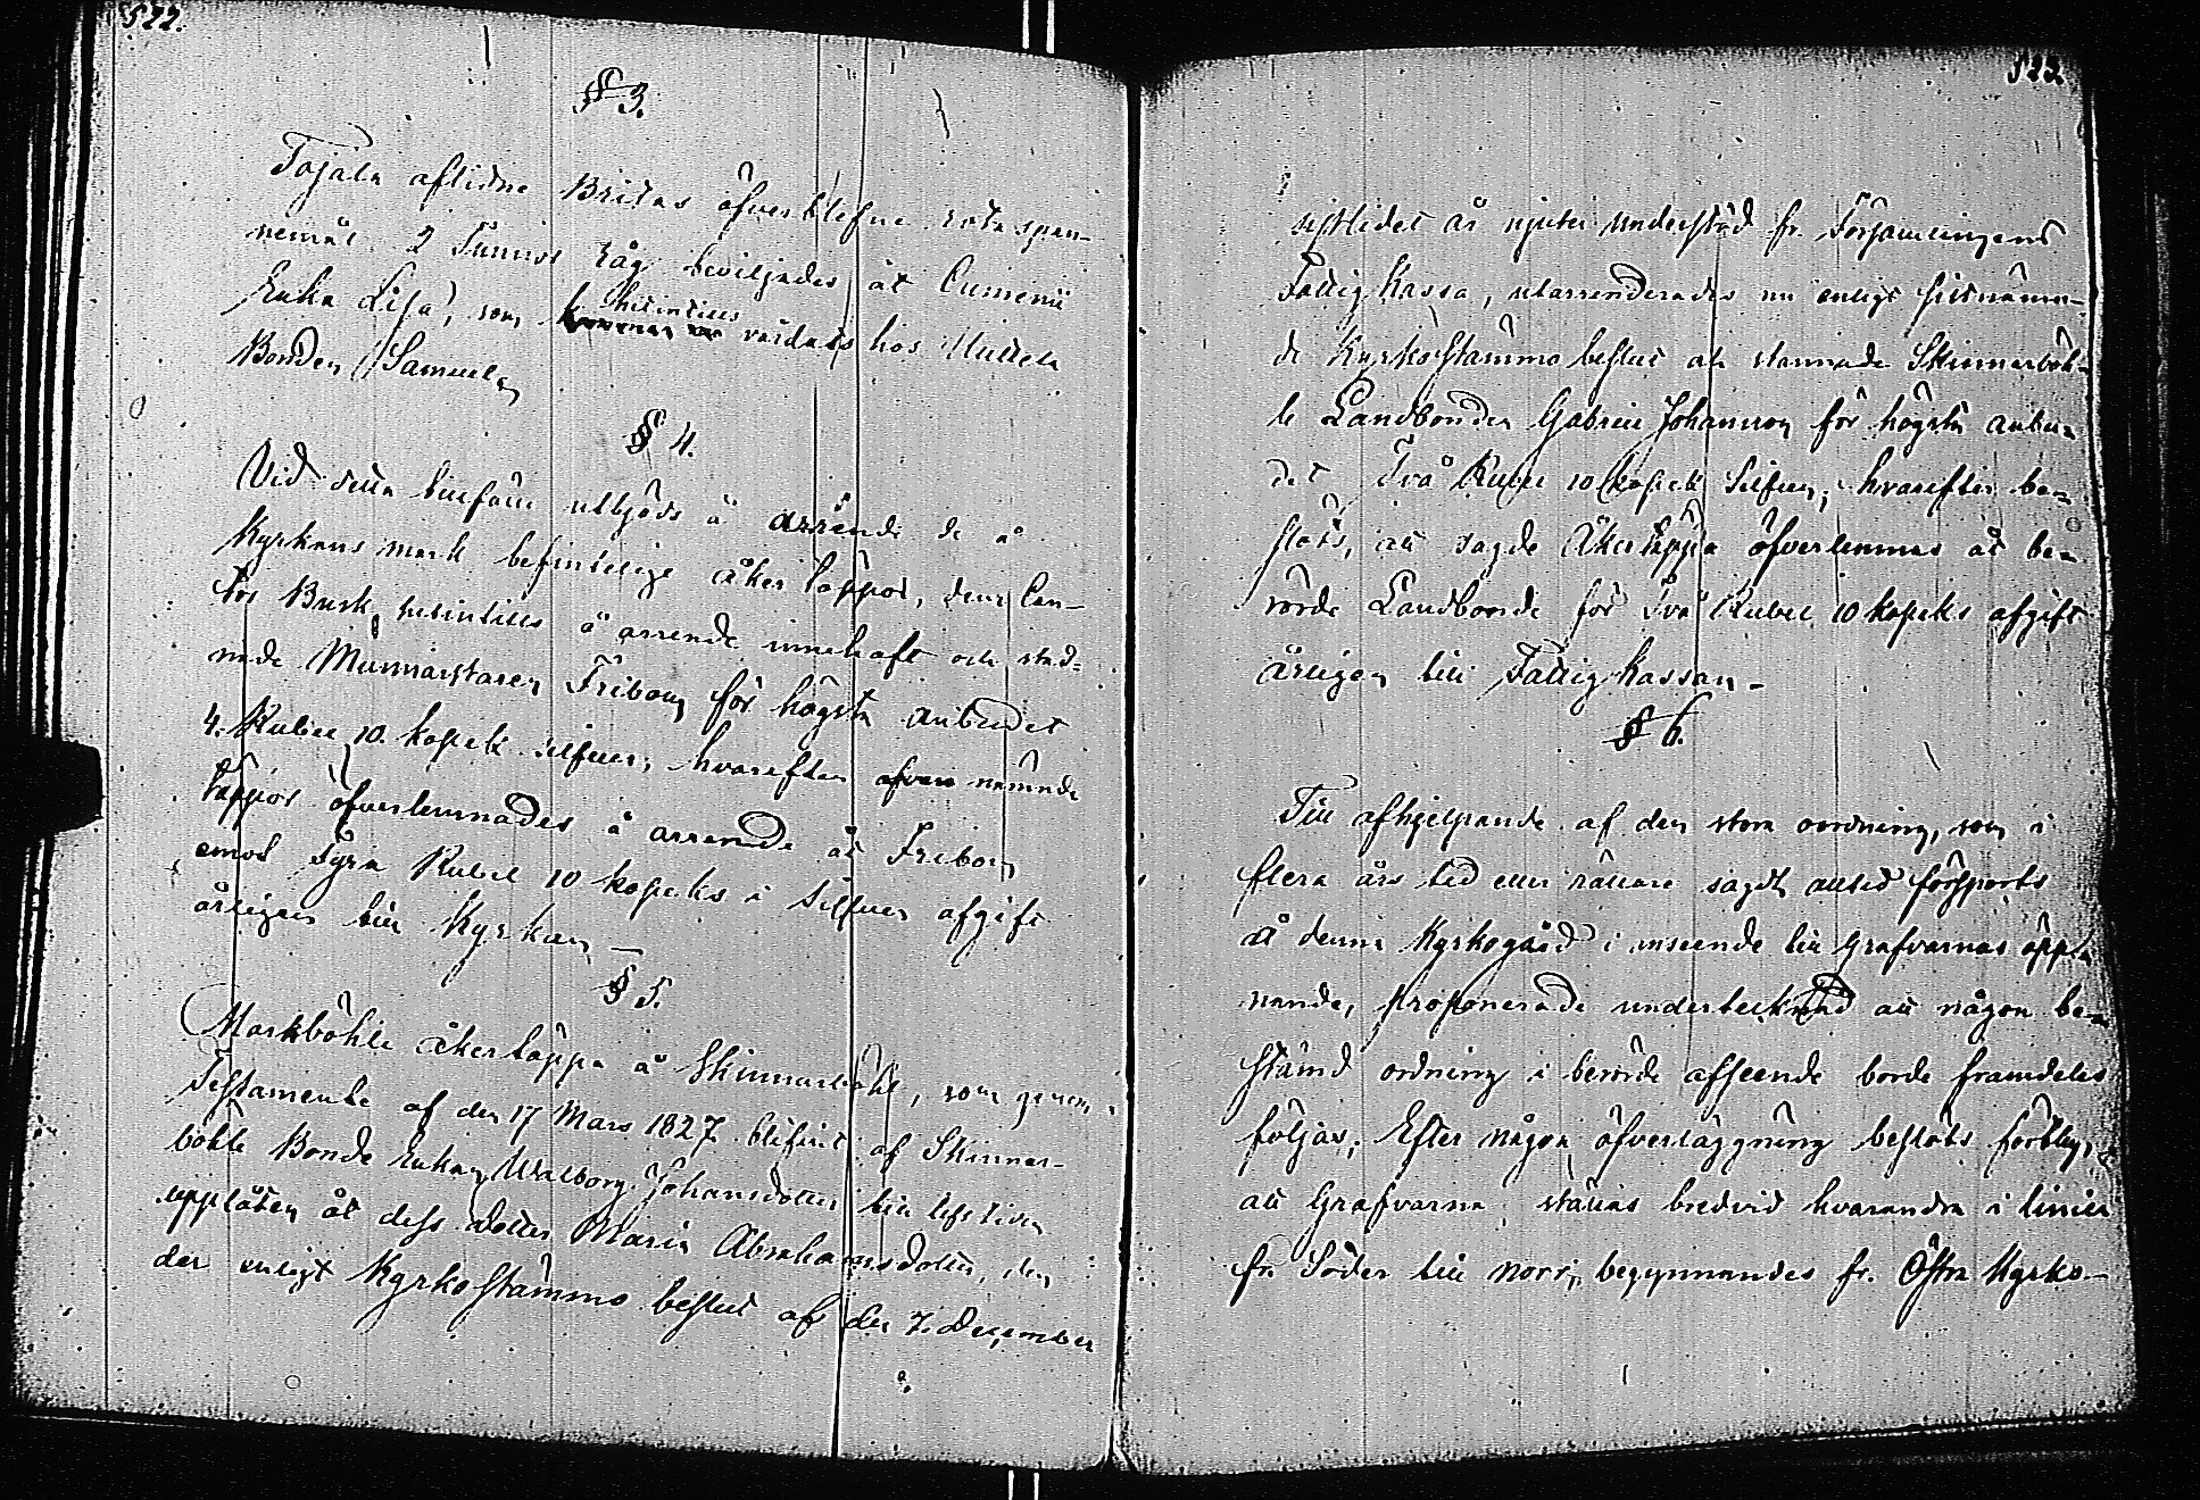 522.
§ 3.
Tojala aflidne Britas öfverblefne rota span-
nemål 2 Tunnor Råg beviljades åt Cumenii
Enka Lisa, som hitintills vårdats hos
Bonden Samuel
§ 4.
Vid detta tillfälle utbjöds å arrende de å
Kyrkans mark befintelige åker täppor, dem Can-
tor Busk hitintills å arrende innehaft och stad-
nade Murmästaren Fribom för högsta anbudet
4. Rubel 10. kopek silfver; hvarefter ofvan nämnde
täppor öfverlemnades å arrende åt Fribom
emot Fyra Rubel 10 kopeks i Silfver afgift
årligen till Kyrkan —
§ 5.
Markböhle åkertäppa å Skinnarböhl, som genom
Testamente af den 17 Mars 1827 blifvit af Skinnar-
böhle Bonde Enkan Walborg Johansdotter till lifstiden
upplåten åt dess dotter Maria Abrahamsdotter, den
der enligt Kyrkostämmo beslut af den 7. December
523.
sistlidet år njuter understöd fr. Församlingens
Fattig Kassa, utarrenderades nu enligt sistnämn-
de Kyrkostämmo beslut och stannade Skinnarböh-
le Landbonden Gabriel Johansson för högsta anbu-
det Två Rubel 10 kopek Silfver; hvarefter be-
slöts, att sagde Åkertäppa öfverlemnas åt be-
rörde Landbonde för Två Rubel 10 kopeks afgift
årligen till Fattig Kassan. —
§ 6.
Till afhjelpande af den stora oordning, som i
flera års tid eller rättare sagdt alltid försports
å denna Kyrkogård i anseende till grafvarnas öpp-
nande, proponerade undertecknad att någon be-
stämd ordning i berörde afseende borde framdeles
följas; Efter någon öfverläggning beslöts
att Grafvarna ställas bredvid hvarandra i linier
fr. Söder till norr, begynnandes fr. Östra Kyrko-